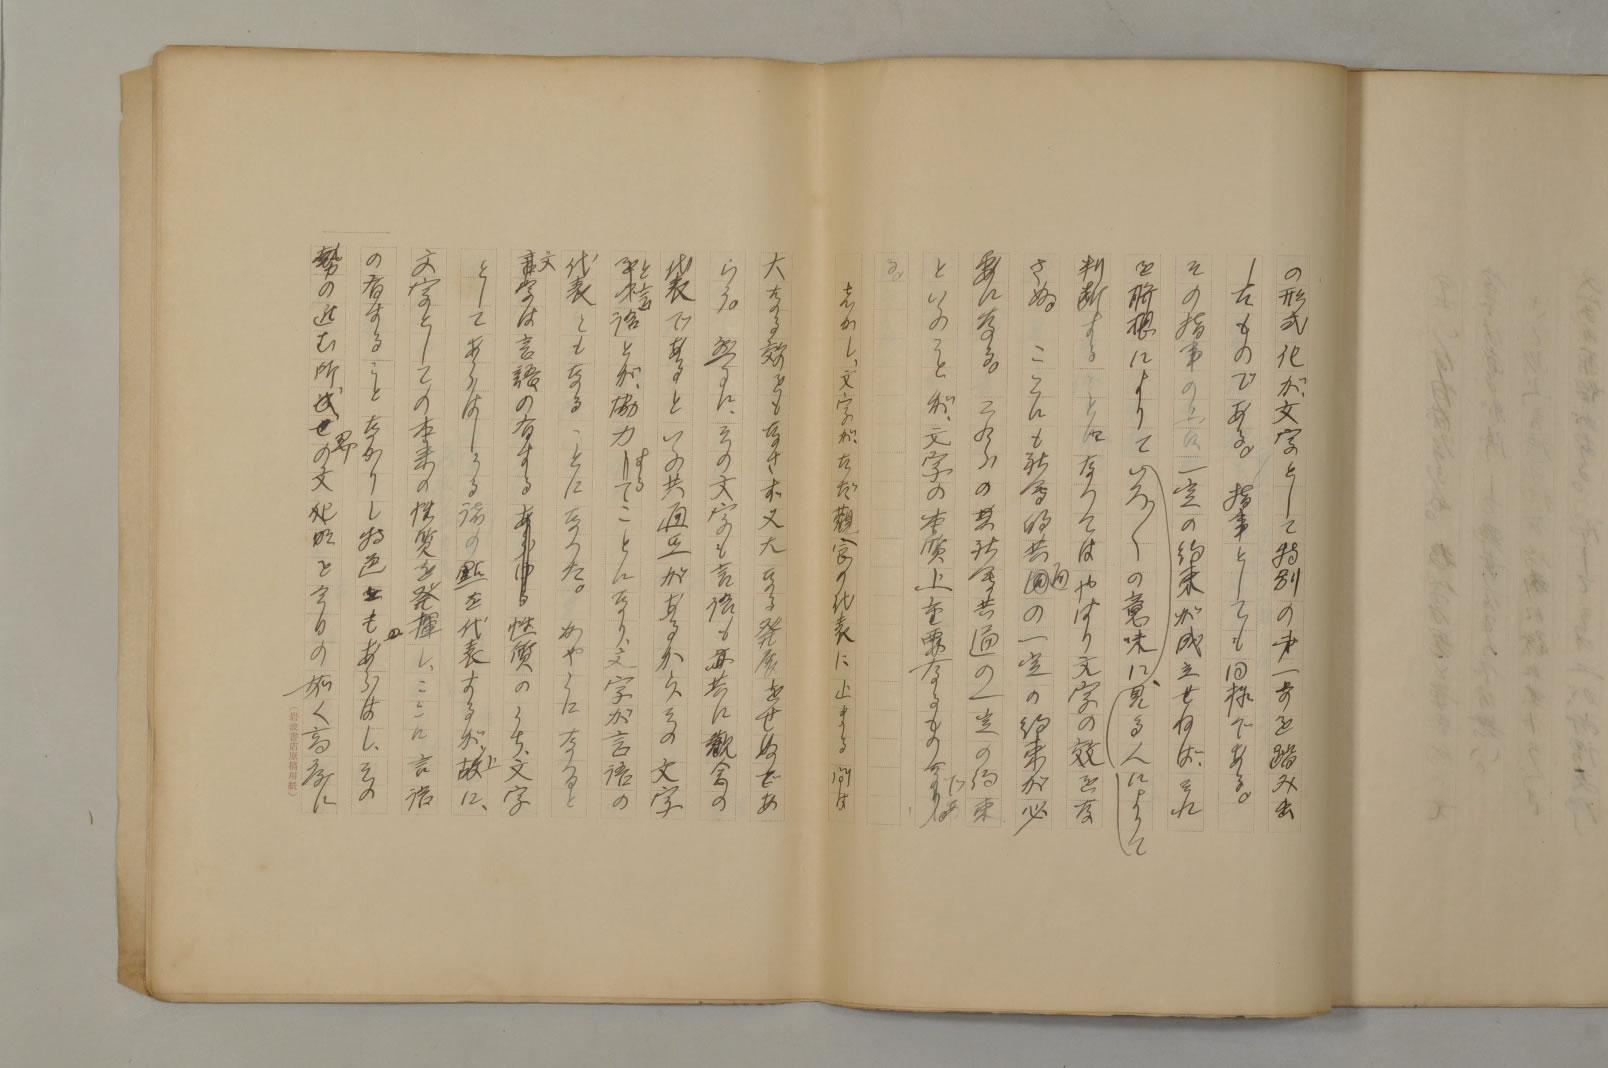 の形式化が、文字として特別の第一歩を踏み出
したものである。指事としても同様である。
その指事の上に一定の約束が成立せねば、それ
を聯想によりていろ〳〵の意味に、見る人によつて
判断することになつてはやはり文字の效をな
さぬ。ここにも社会的共通の一定の約束が必
要になる。これらの社会共通の一定の約束
といふことが、文字の本質上重要なるもの であ
る。
しかし、文字が、ただ觀念の代表に止まる間は
大なる效をもなさず又大なる発展をせぬであ
らう。然るに、その文字も言語も亦共に觀念の
代表であるといふ共通点があるから、その文字
と言語とが、協力することになり、文字が言語の
代表ともなることになつた。かやうになると
文字は言語の有する性質のうち、文字
としてあらはしうる諸の點を代表するが上に、
文字としての本来の性質を発揮し、ここに言語
の有することなかりし特色をもあらはし、その
勢の進む所、
の如く高尚に
(岩波書店原稿用紙)